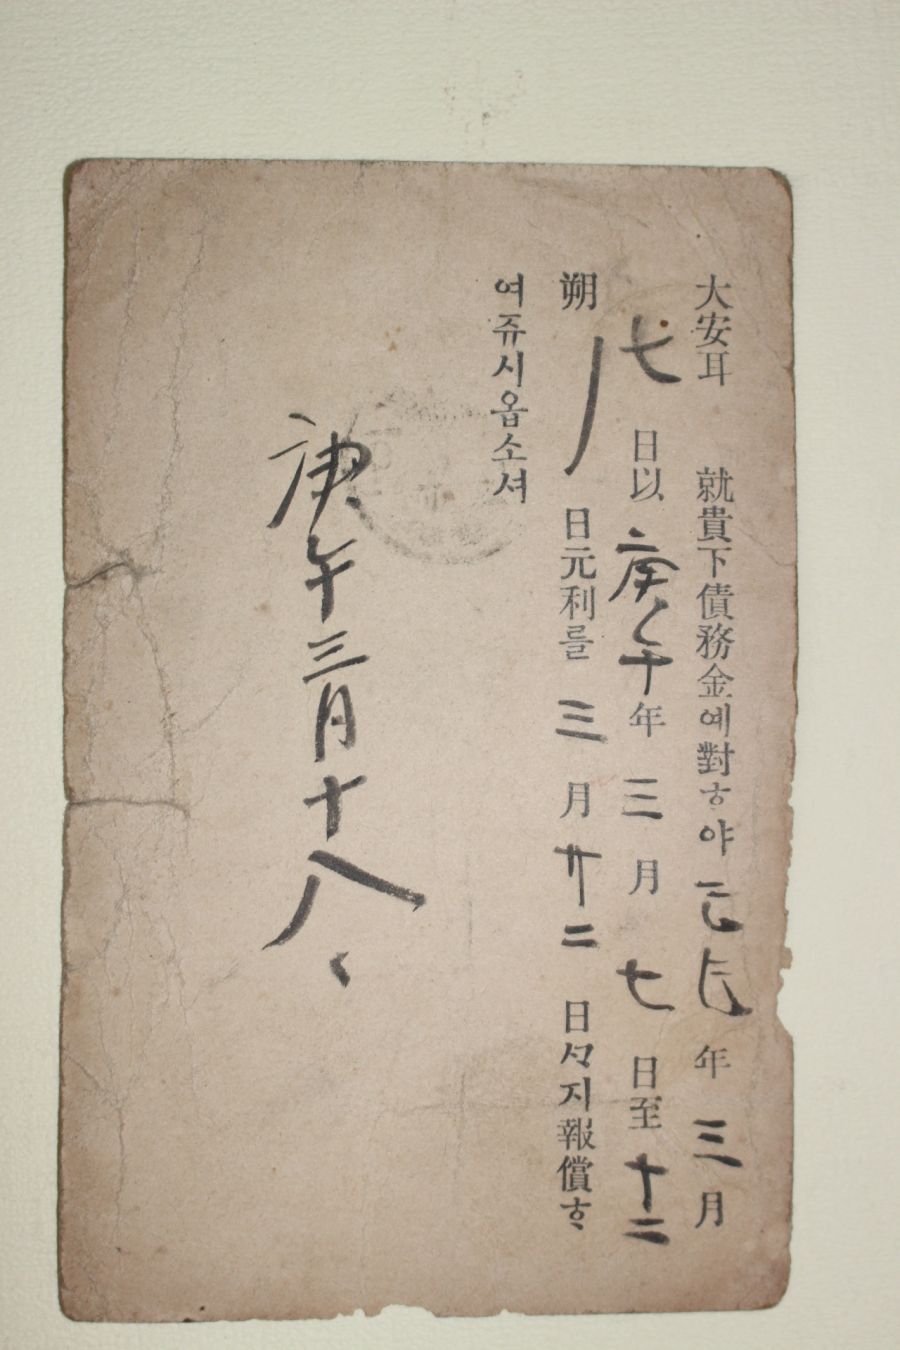 大安耳 就貴下債務金예對ᄒᆞ야 己巳年 三月
七日以 庚午年 三月 七日至 十二
朔 日元利를 三月 廿二 日ᄭᆞ지報償ᄒᆞ
여쥬시옵소셔
庚午三月十八